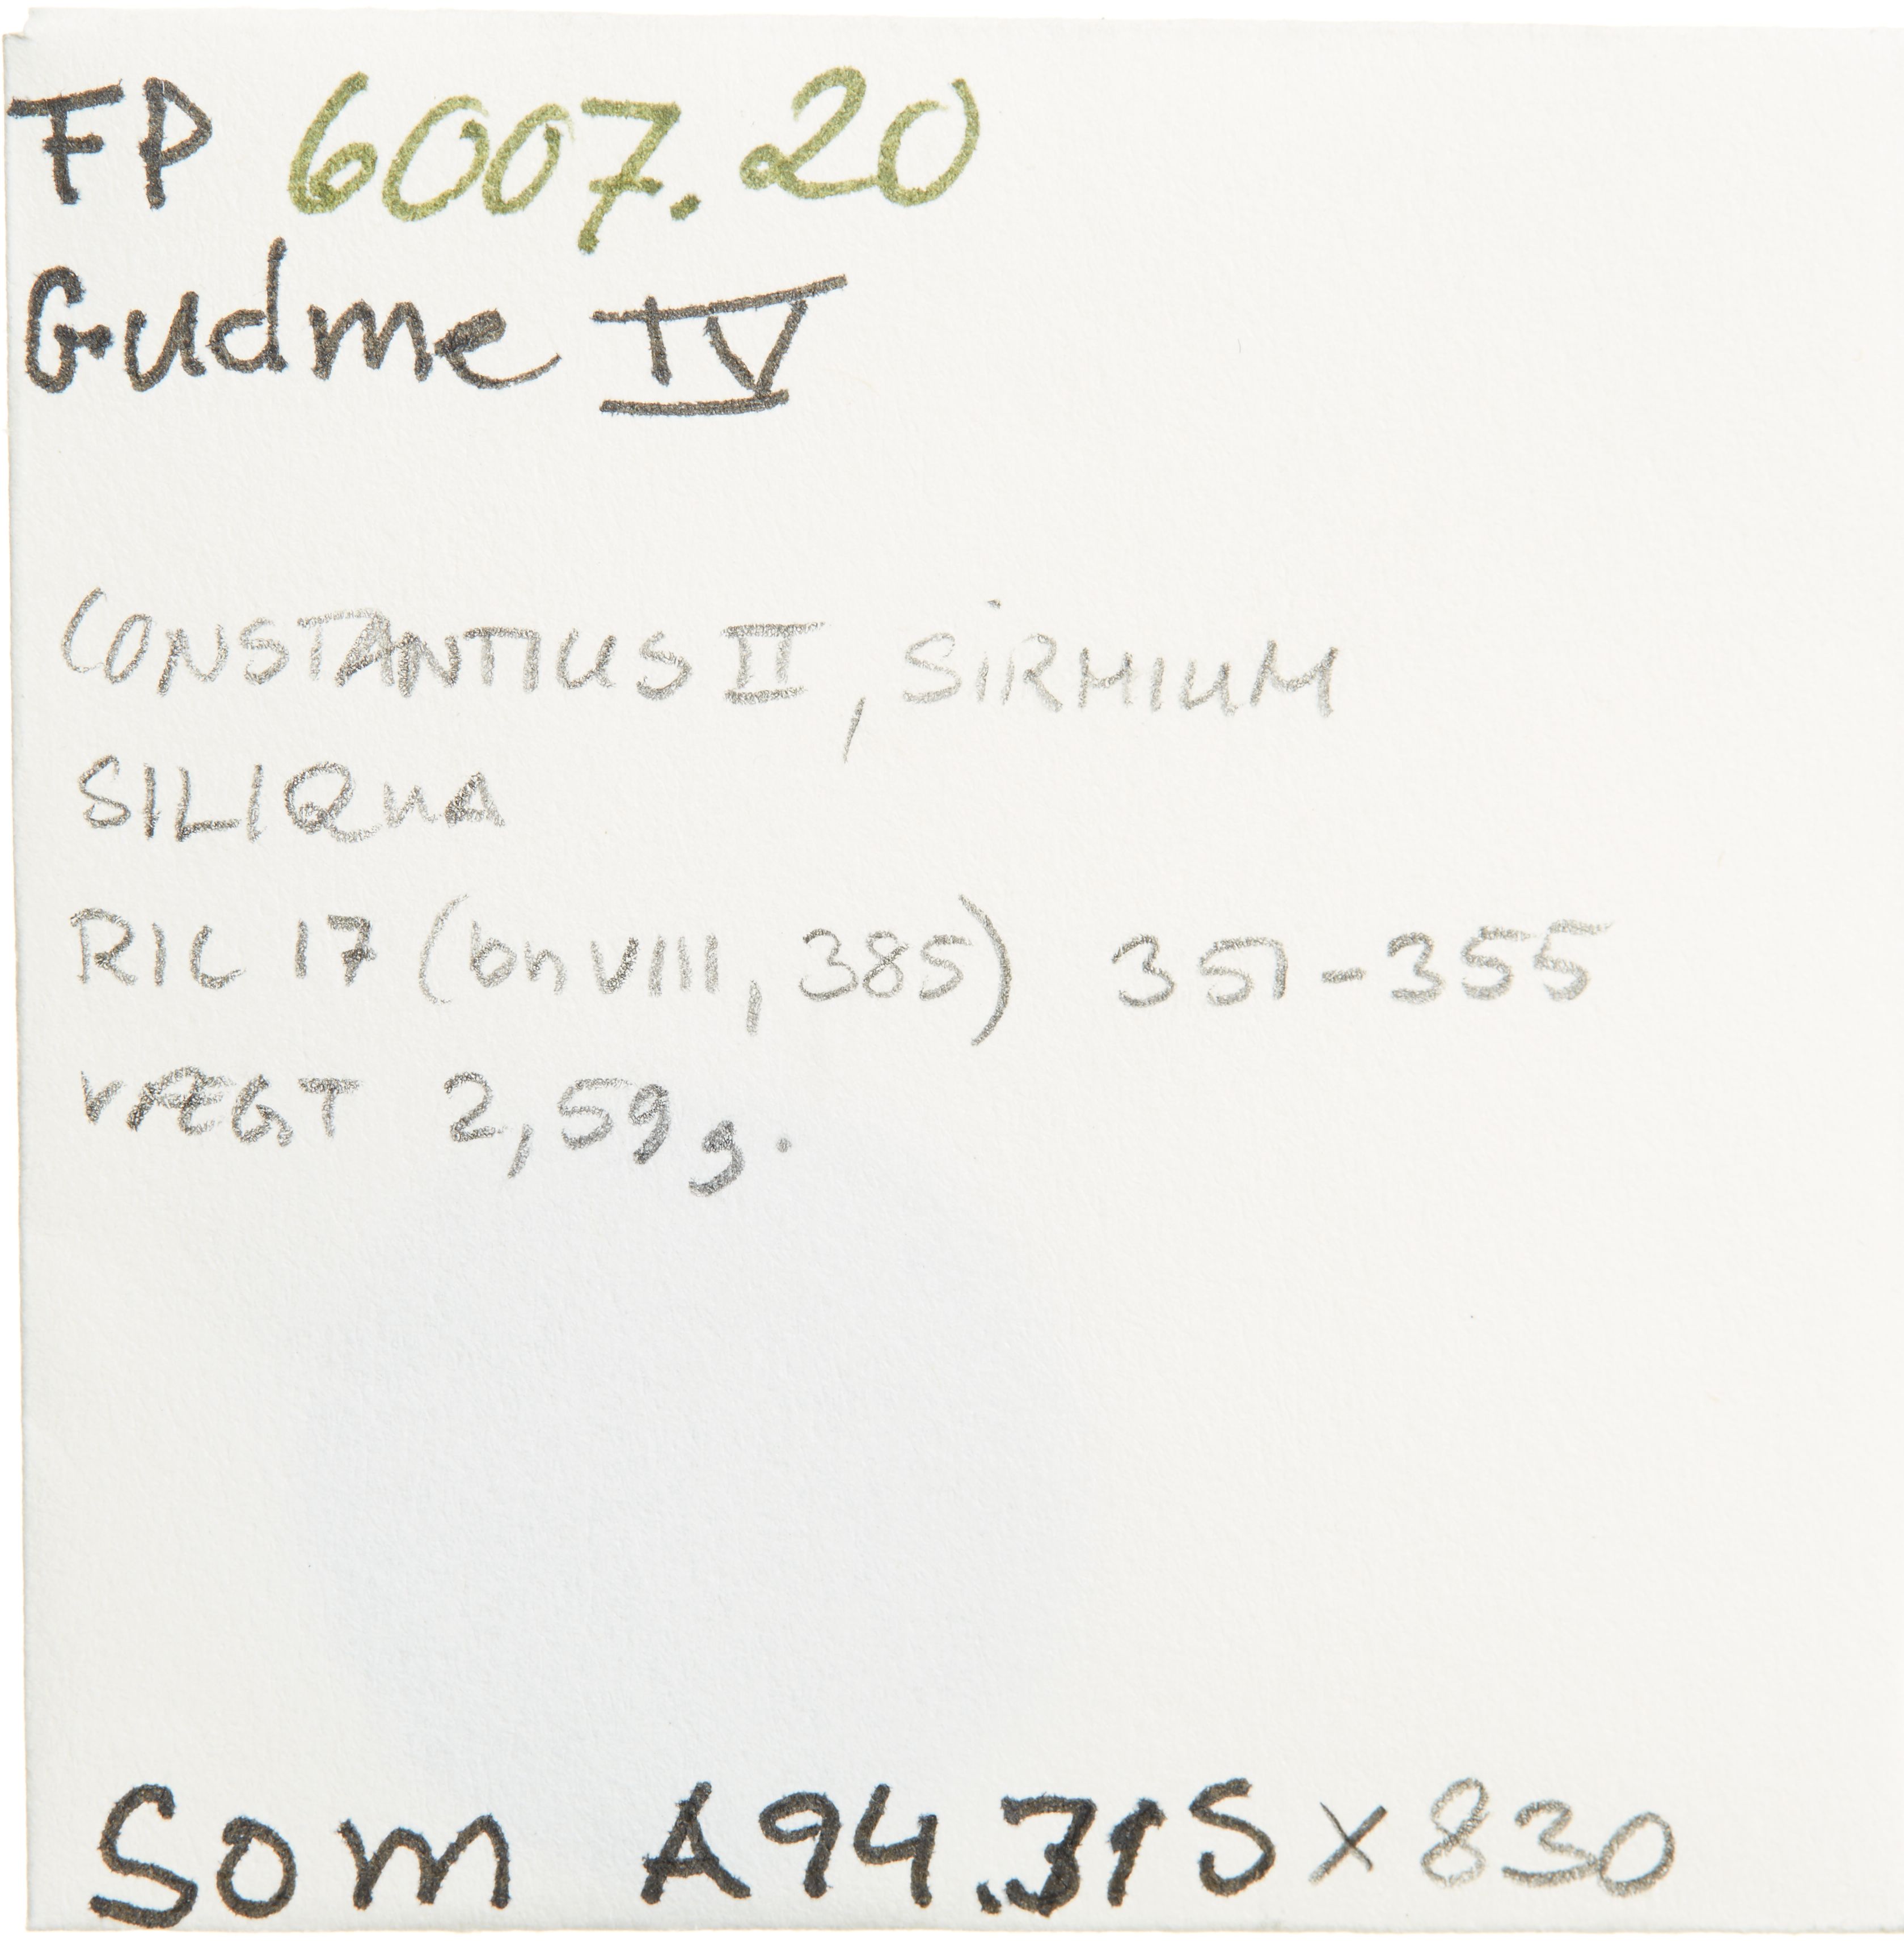 FP 6007.20
Gudme IV
CONSTANTIUS II, SIRMIUM
SILIQUA
RIC 17 (bn VIII, 385) 351-355
VÆGT 2,59 g.
Som A94.315 x 830